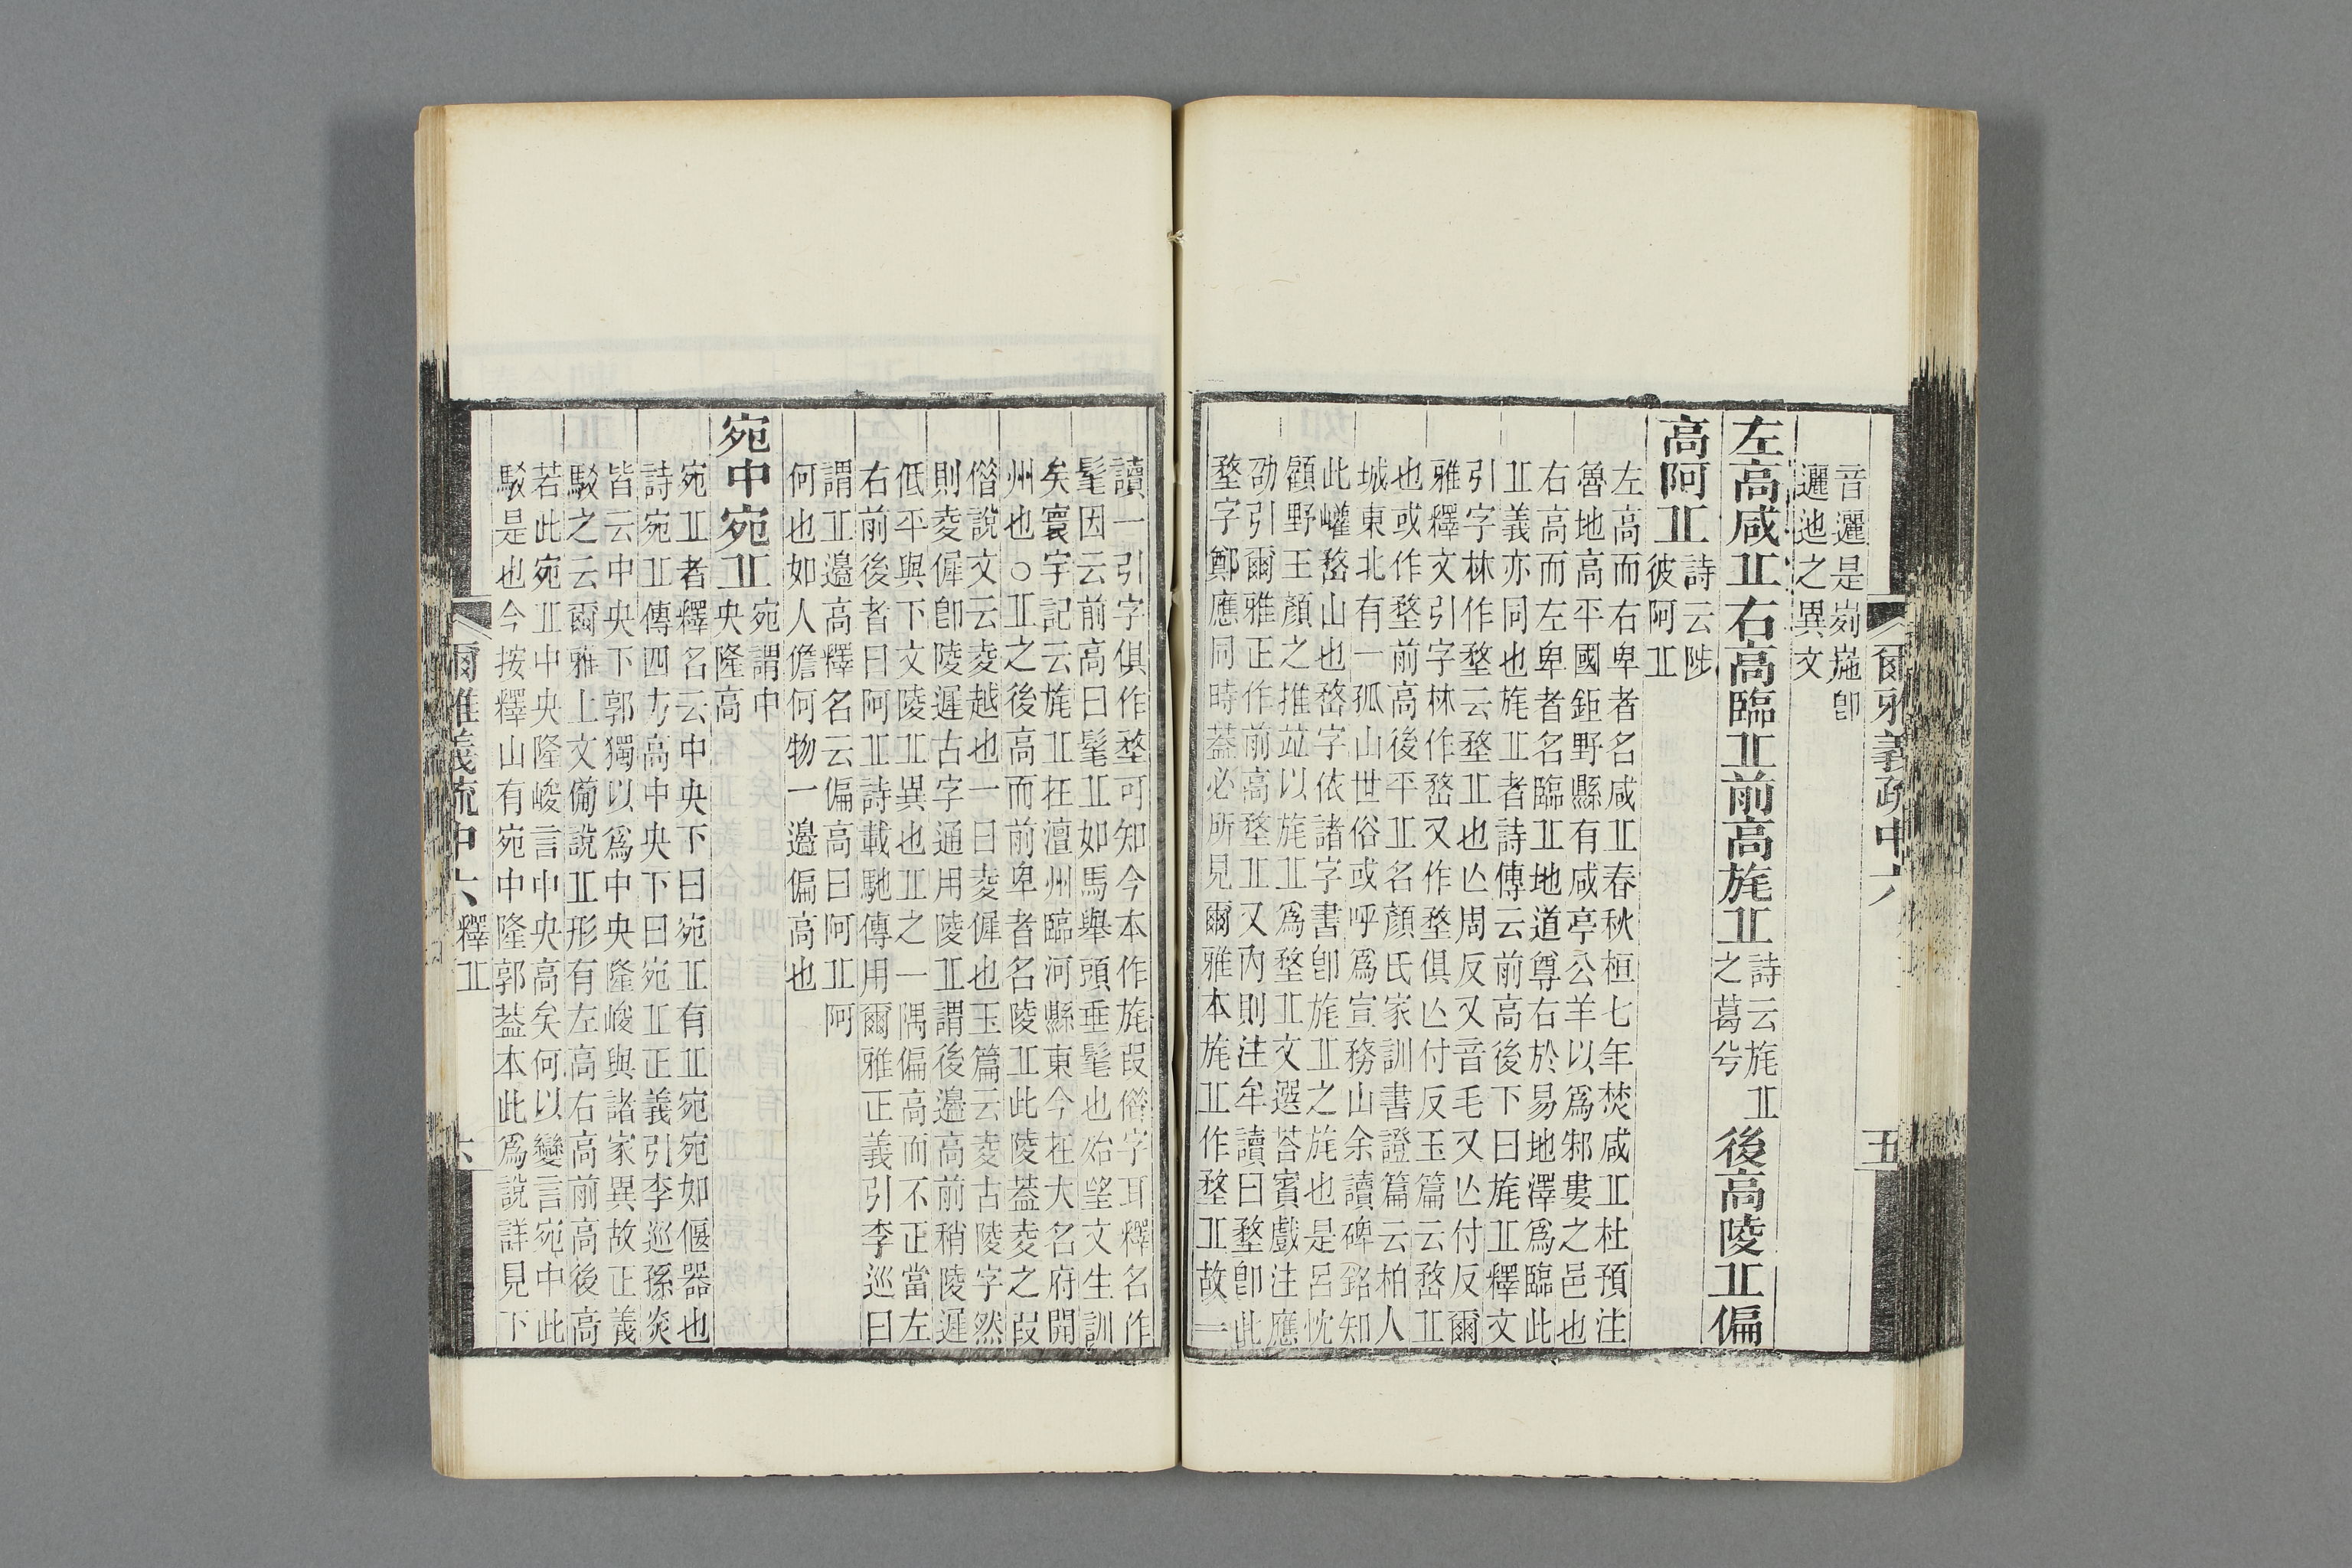 爾雅義疏中六 五
音邐是峛崺卽
邐迆之異文
左高咸丠右高臨丠前高旄丠
詩云旄丠
之葛兮
後高陵丠偏
高阿丠
詩云陟
彼阿丠
左高而右卑者名咸丠春秋桓七年焚咸丠杜預注
魯地高平國鉅野縣有咸亭公羊以爲邾婁之邑也
右高而左卑者名臨丠地道尊右於易地澤爲臨此
丠義亦同也旄丠者詩傳云前高後下曰旄丠釋文
引字林作堥云堥丠也亾周反又音毛又亾付反爾
雅釋文引字林作嵍又作堥俱亾付反玉篇云嵍丠
也或作堥前高後平丠名顏氏家訓書證篇云柏人
城東北有一孤山世俗或呼爲宣務山余讀碑銘知
此巏嵍山也嵍字依諸字書卽旄丠之旄也是呂忱
顧野王顏之推竝以旄丠爲堥丠文選荅賓戲注應
劭引爾雅正作前高堥丠又內則注牟讀曰堥卽此
堥字鄭應同時葢必所見爾雅本旄丠作堥丠故一
讀一引字俱作堥可知今本作旄叚借字耳釋名作
髦因云前高曰髦丠如馬舉頭垂髦也殆望文生訓
矣寰宇記云旄丠在澶州臨河縣東今在大名府開
州也○丠之後高而前卑者名陵丠此陵葢夌之叚
借說文云夌越也一曰夌徲也玉篇云夌古陵字然
則夌徲卽陵遲古字通用陵丠謂後邊高前稍陵遲
低平與下文陵丠異也丠之一隅偏高而不正當左
右前後者曰阿丠詩載馳傳用爾雅正義引李巡曰
謂丠邊高釋名云偏高曰阿丠阿
何也如人儋何物一邊偏高也
宛中宛丠
宛謂中
央隆高
宛丠者釋名云中央下曰宛丠有丠宛宛如偃器也
詩宛丠傳四方高中央下曰宛丠正義引李巡孫炎
皆云中央下郭獨以爲中央隆峻與諸家異故正義
駁之云爾雅上文備說丠形有左高右高前高後高
若此宛丠中央隆峻言中央高矣何以變言宛中此
駁是也今按釋山有宛中隆郭葢本此爲說詳見下
爾雅義疏中六 釋丠 六